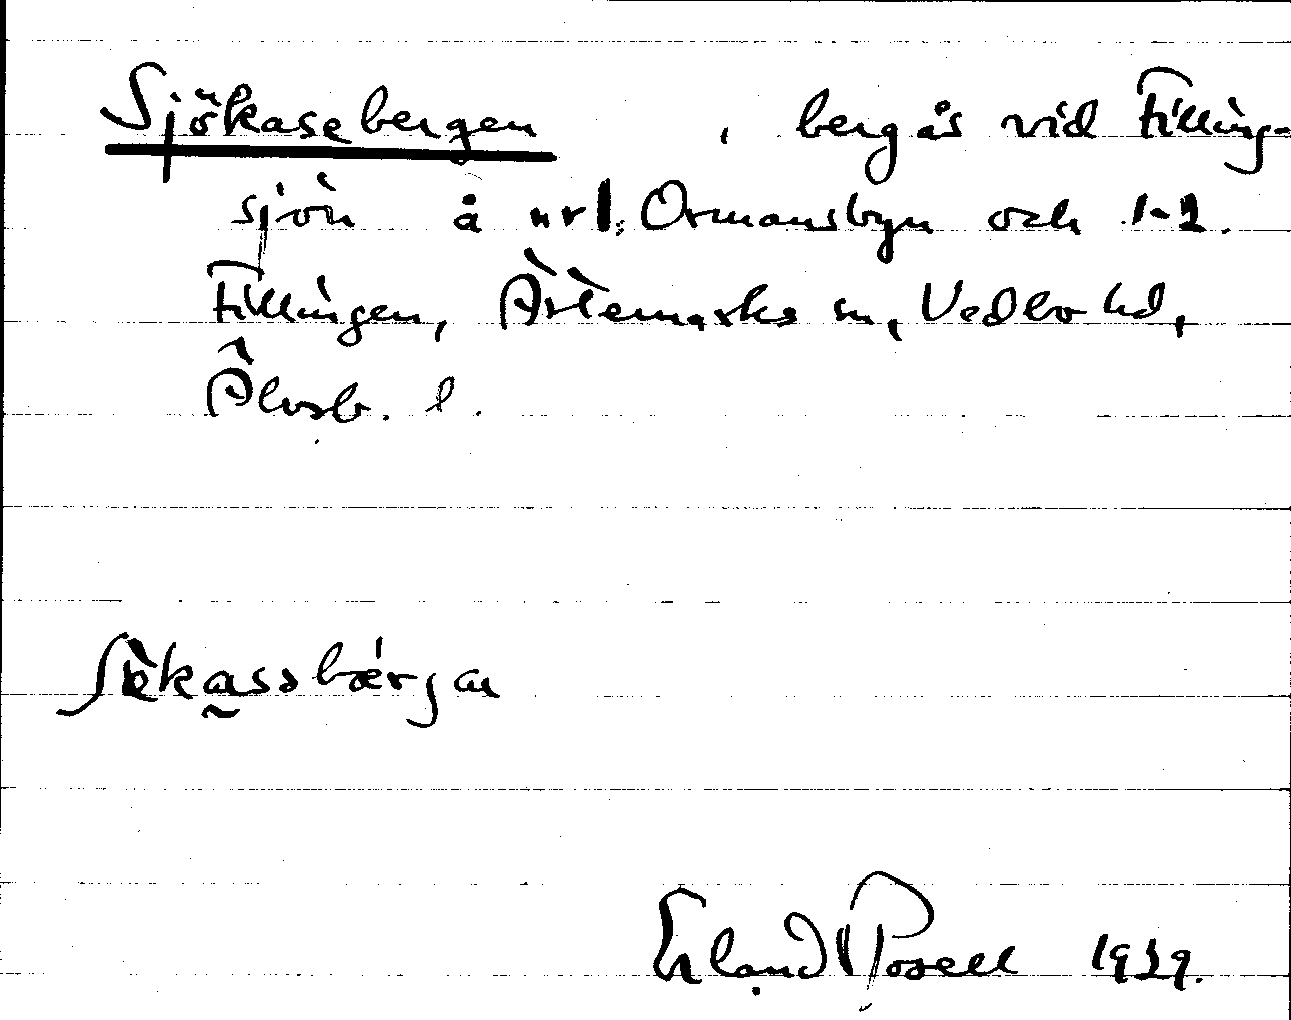 Sjökasebergen , bergås vid Filling-
sjön å nr 1. Ormansbyn och 1-2.
Fillingen, Ärtemarks sn, Vedbo hd,
Älvsb. l.
ʃökassbærjan
Erland Rosell 1939.